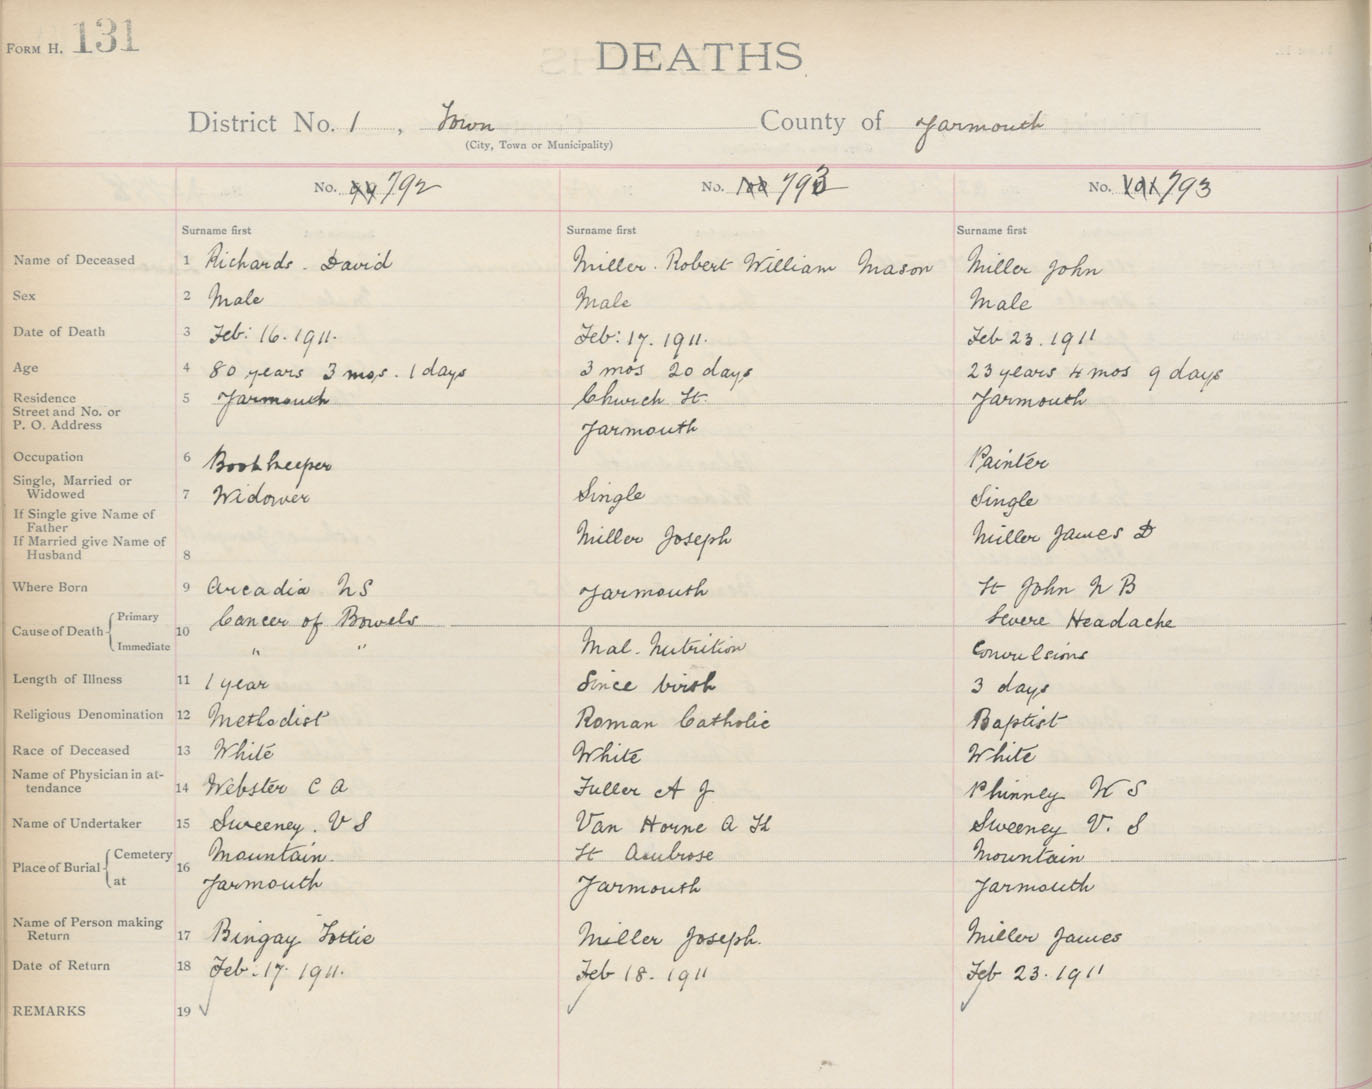 FORM H. 131
DEATHS
District No. 1, Town County of Yarmouth
(City, Town or Municipality)
No. 99 792 No. 100 793 No. 101 793
Surname first Surname first Surname first
Name of Deceased 1 Richards. David Miller. Robert William Mason Miller John
Sex 2 Male Male Male
Date of Death 3 Feb: 16. 1911. Feb: 17. 1911. Feb 23. 1911
Age 4 80 years 3 mos. 1 days 3 mos 20 days 23 years 4 mos 9 days
Residence 5 Yarmouth Church St. Yarmouth
Street and No. or
P. O. Address Yarmouth
Occupation 6 Bookkeeper Painter
Single, Married or
Widowed 7 Widower Single Single
If Single give Name of
Father
If Married give Name of Miller Joseph Miller James D
Husband 8
Where Born 9 Arcadia NS Yarmouth St John N B
Cause of Death Primary 10 Cancer of Bowels Severe Headache
Immediate " " Mal. Nutrition Convulsions
Length of Illness 11 1 year Since birth 3 days
Religious Denomination 12 Methodist Roman Catholic Baptist
Race of Deceased 13 White White White
Name of Physician in at-
tendance 14 Webster C A Fuller A J Phinney W S
Name of Undertaker 15 Sweeney. V S Van Horne A H Sweeney V. S
Place of Burial Cemetery 16 Mountain. St Ambrose Mountain
at Yarmouth Yarmouth Yarmouth
Name of Person making
Return 17 Bingay Tottie Miller Joseph. Miller James
Date of Return 18 Feb. 17. 1911. Feb 18. 1911 Feb 23. 1911
REMARKS 19